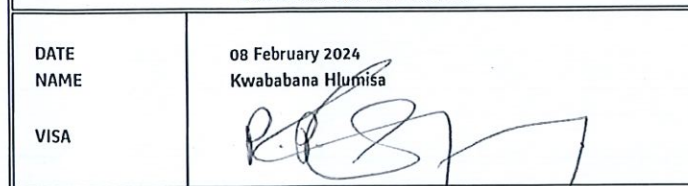 DATE 08 February 2024
NAME Kwababana Hlumisa
VISA P.P.